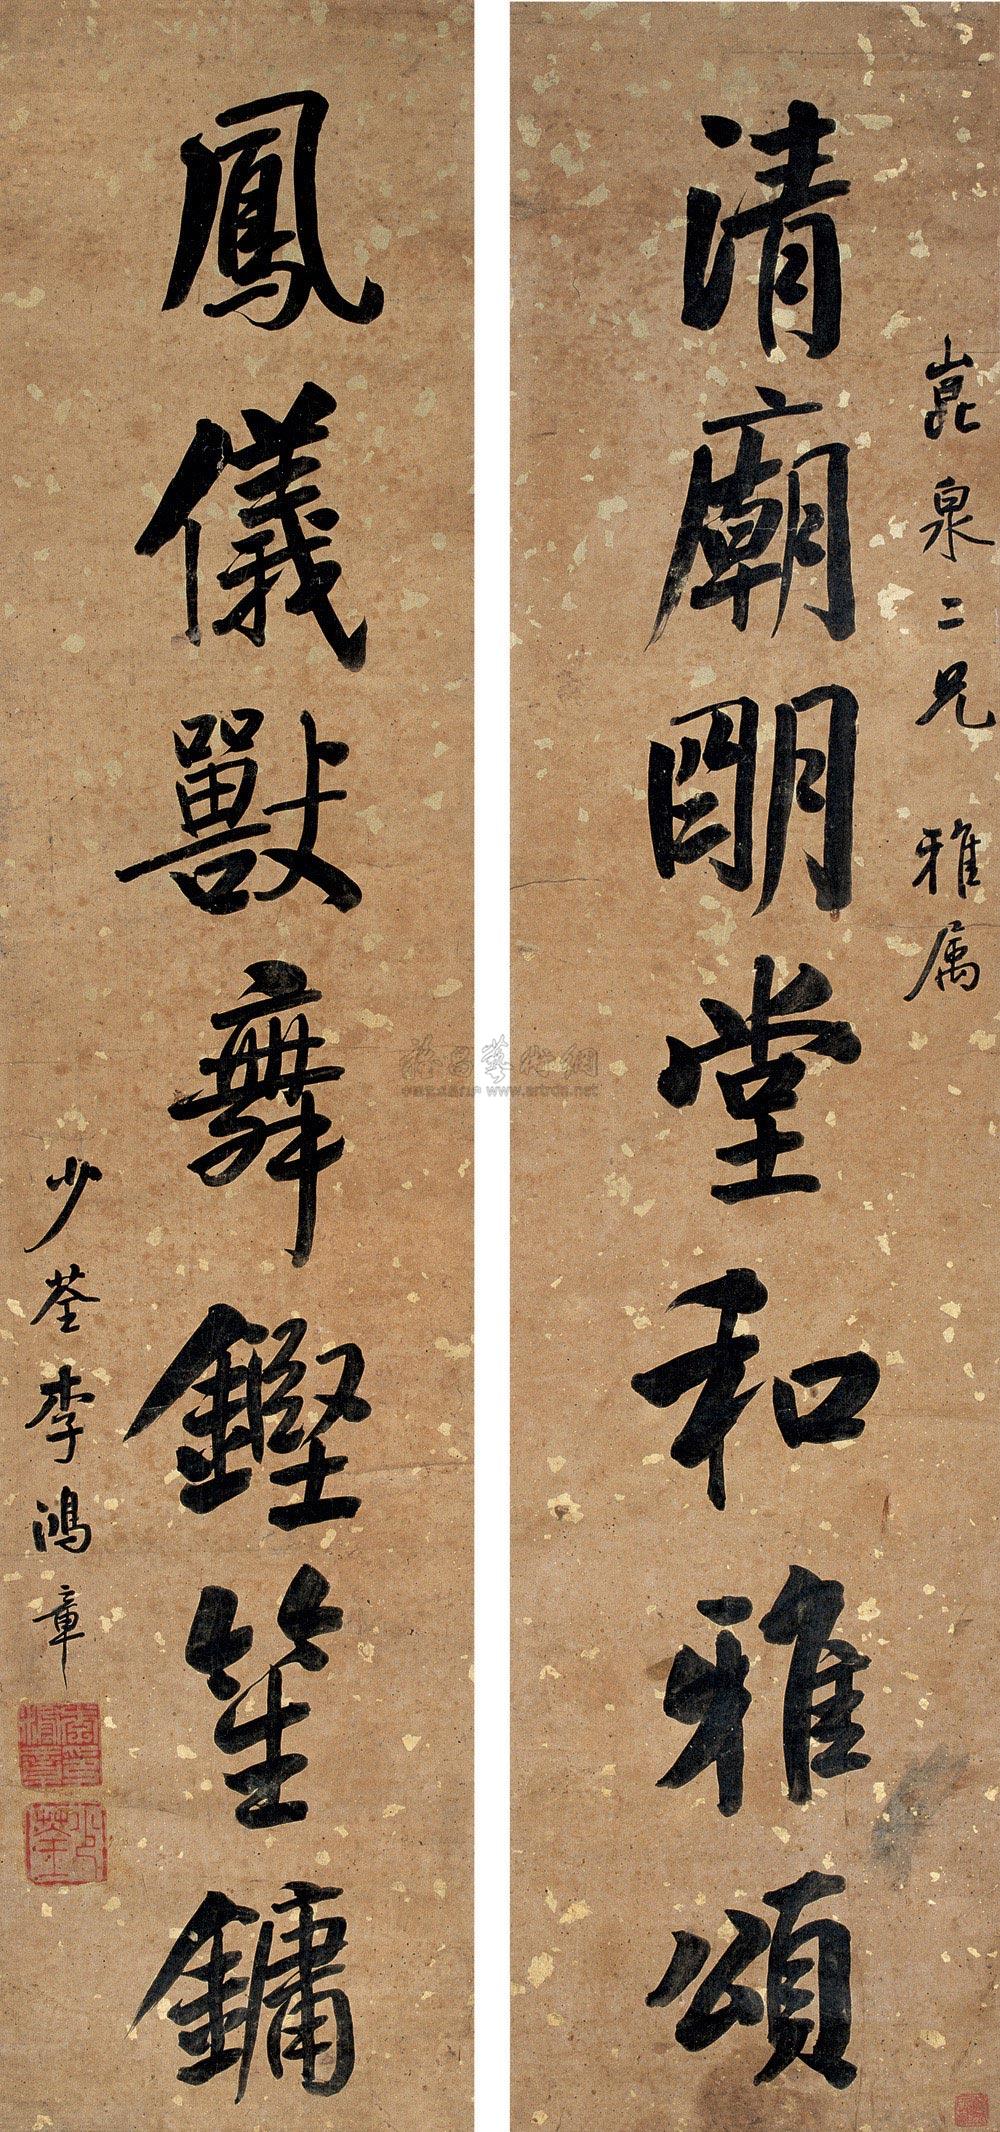 崑泉二兄雅属
清廟眀堂和雅頌
鳳儀獸舞鏗笙鏞
少荃李鴻章
www.artron.net